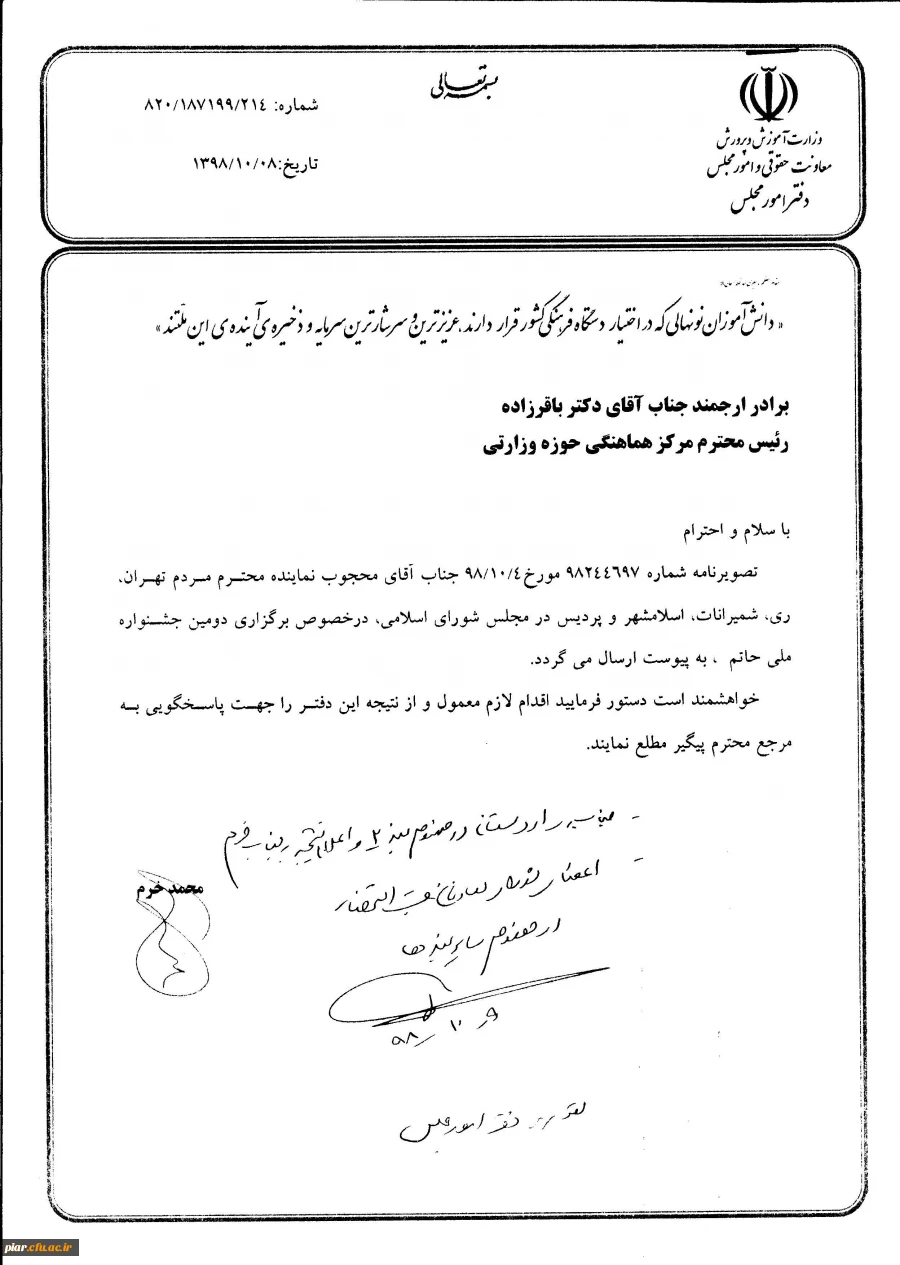 بسمه تعالی
وزارت آموزش و پرورش
معاونت حقوقی و امور مجلس
دفتر امور مجلس
شماره: ۸۲۰/۱۸۷۱۹۹/۲۱٤
تاریخ:۱۳۹۸/۱۰/۰۸
« دانش‌آموزان نونهالی که در اختیار دستگاه فرهنگی کشور قرار دارند، عزیزترین و سرشارترین سرمایه و ذخیره‌ی آینده‌ی این ملتند »
برادر ارجمند جناب آقای دکتر باقرزاده
رئیس محترم مرکز هماهنگی حوزه وزارتی
با سلام و احترام
تصویرنامه شماره ۹۸۲٤٤٦۹۷ مورخ ۹۸/۱۰/٤ جناب آقای محجوب نماینده محترم مردم تهران،
ری، شمیرانات، اسلامشهر و پردیس در مجلس شورای اسلامی، درخصوص برگزاری دومین جشنواره
ملی حاتم ، به پیوست ارسال می گردد.
خواهشمند است دستور فرمایید اقدام لازم معمول و از نتیجه این دفتر را جهت پاسخگویی به
مرجع محترم پیگیر مطلع نمایند.
در خصوص بند ۲ و اعلام نتیجه
محمد خرم
اعضای شورای معاونان
در خصوص سایر بندها
۹۸/۱۰/۹
دفتر امور مجلس
piar.cfu.ac.ir